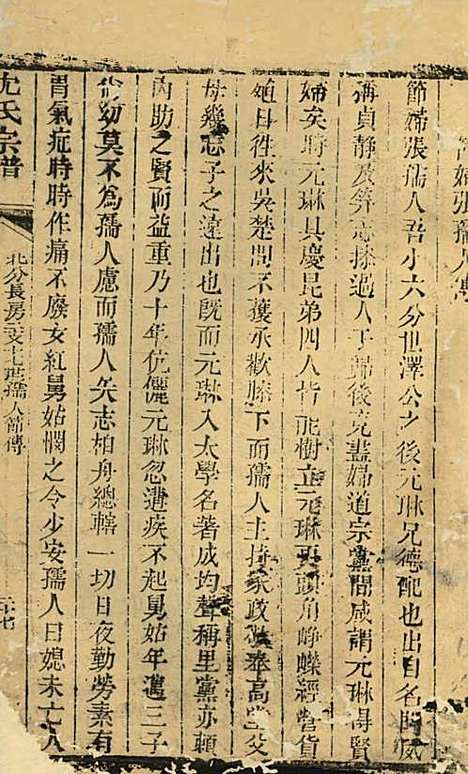 節婦張孺人
節婦張孺人吾小六分世澤公之後元琳兄德配也出自名閥咸
稱貞靜及笄志操過人于歸後克盡婦道宗黨間咸謂元琳得賢
婦矣時元琳具慶昆弟四人皆能樹立元琳頭角崢嶸經營貨
殖日往來吳楚間不獲承歡膝下而孺人主持家政奉高堂父
母幾忘子之遠出也既而元琳入太學名著成均聲稱里黨亦頼
內助之賢而益重乃十年伉儷元琳忽遭疾不起舅姑年邁三子
尚幼莫不為孺人慮而孺人矢志柏舟總轄一切日夜勤勞素有
胃氣症時時作痛不廢女紅舅姑憫之令少安孺人曰媳未亡人
沈氏宗譜
北分長房三支七世孺人節傳